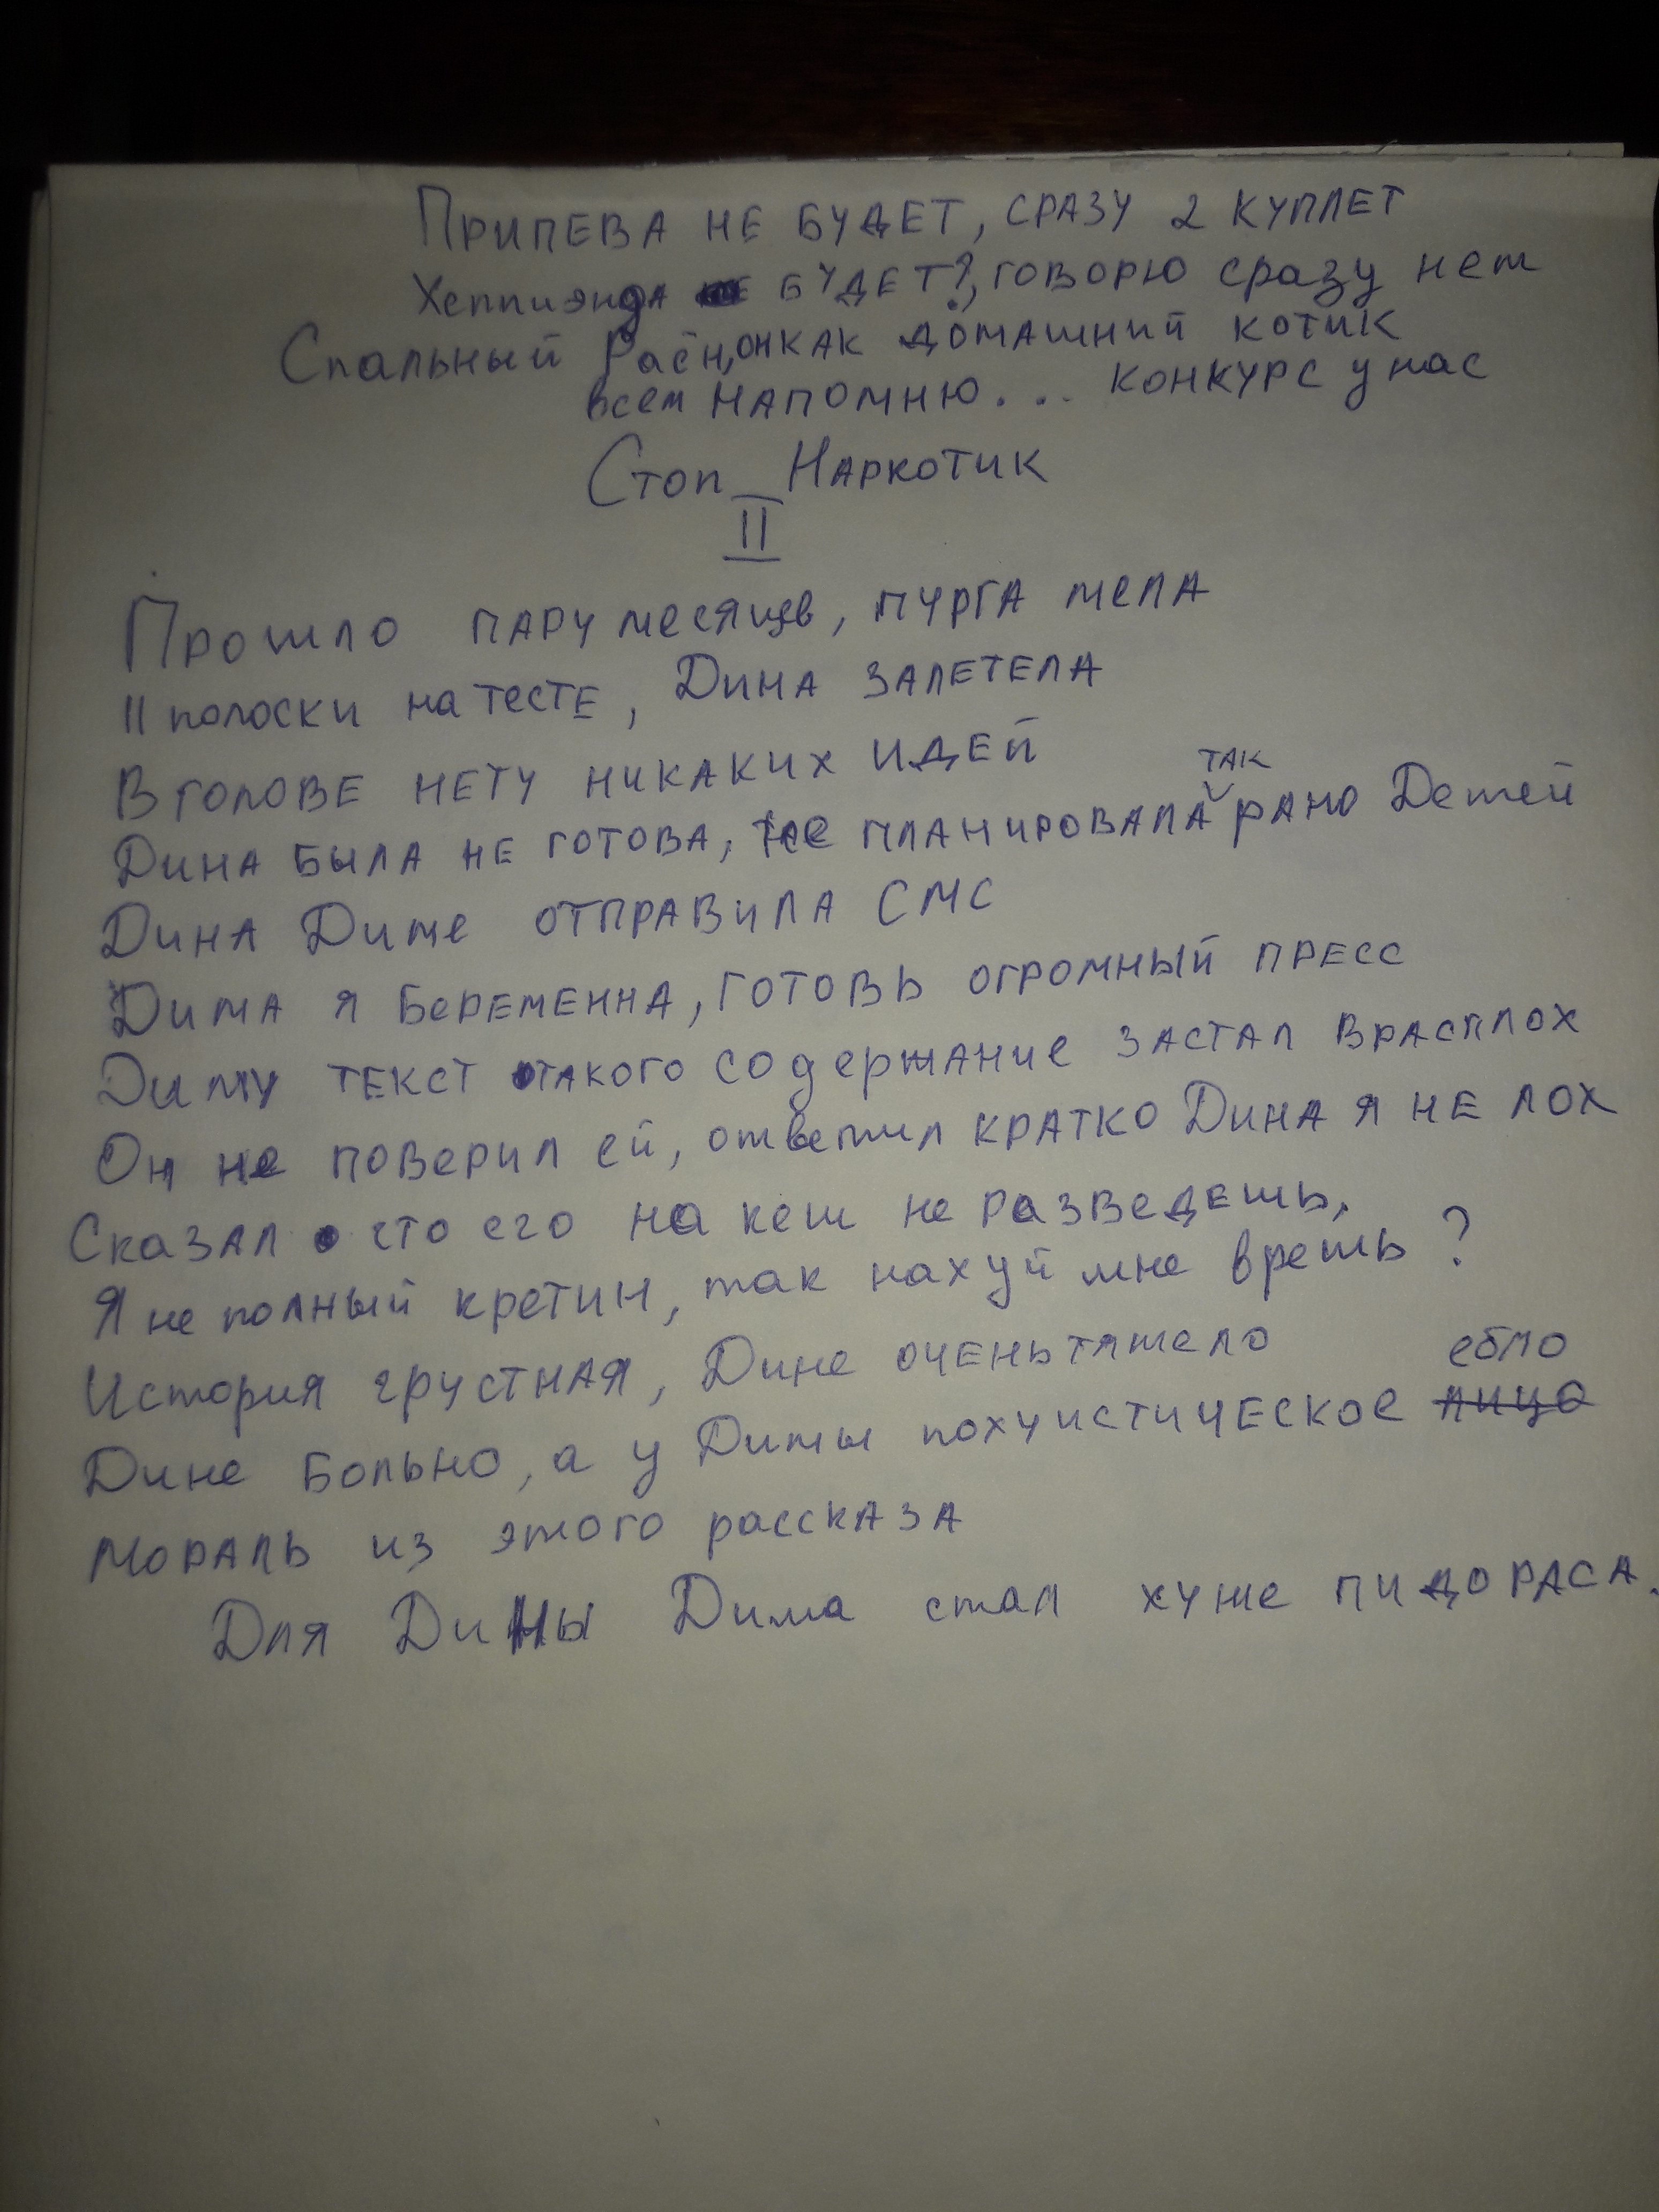 ПРИПЕВА НЕ БУДЕТ, СРАЗУ 2 КУПЛЕТ
Хеппиэнда БУДЕТ?, говорю сразу нет
Спальный Раён, он как домашний котик
всем напомню... конкурс у нас
Стоп_Наркотик
II
Прошло пару месяцев, пурга мела
II полоски на тесте, Дина залетела
В голове нету никаких идей
Дина была не готова, не планировала так рано Детей
Дина Диме отправила СМС
Дима я беременна, готовь огромный пресс
Диму текст такого содержание застал врасплох
Он не поверил ей, ответил кратко Дина я не лох
Сказал что его на кеш не разведешь,
Я не полный кретин, так нахуй мне врешь?
История грустная, Дине очень тяжело
Дине больно, а у Димы похуистическое лицо ебло
Мораль из этого рассказа
Для Дины Дима стал хуже пидораса.